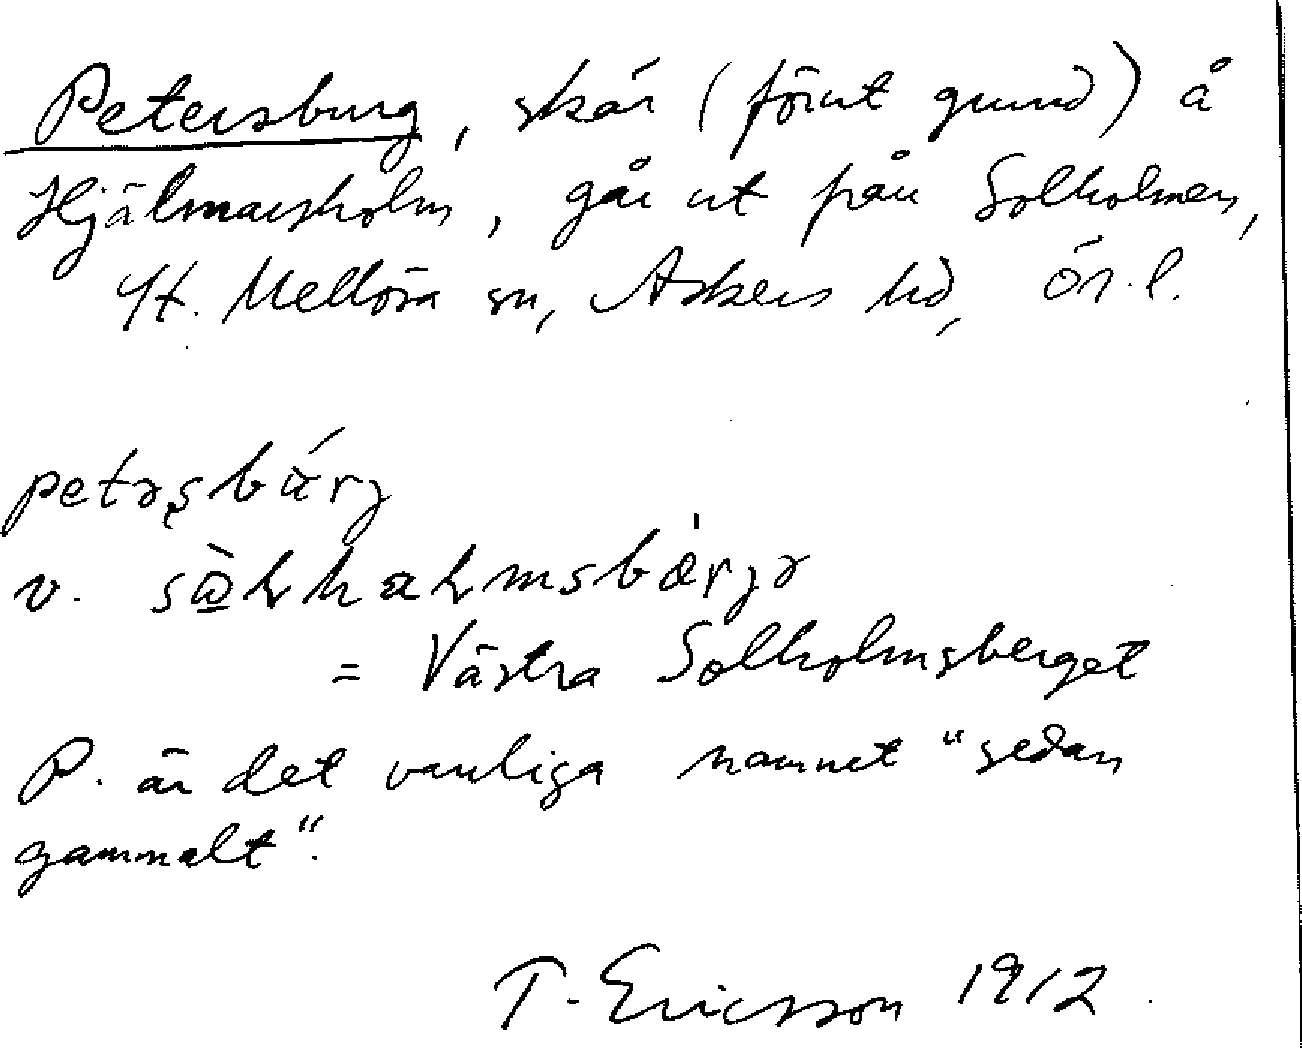 Petersburg, skär (förut grund) å
Hjälmarsholm, går ut från Solholmen,
St. Mellösa sn, Askers hd, ör.l.
petəʂbárj
v. sòlhalmsbærjə
= Västra Solholmsberget
P. är det vanliga namnet "sedan
gammalt".
T. Ericsson 1912